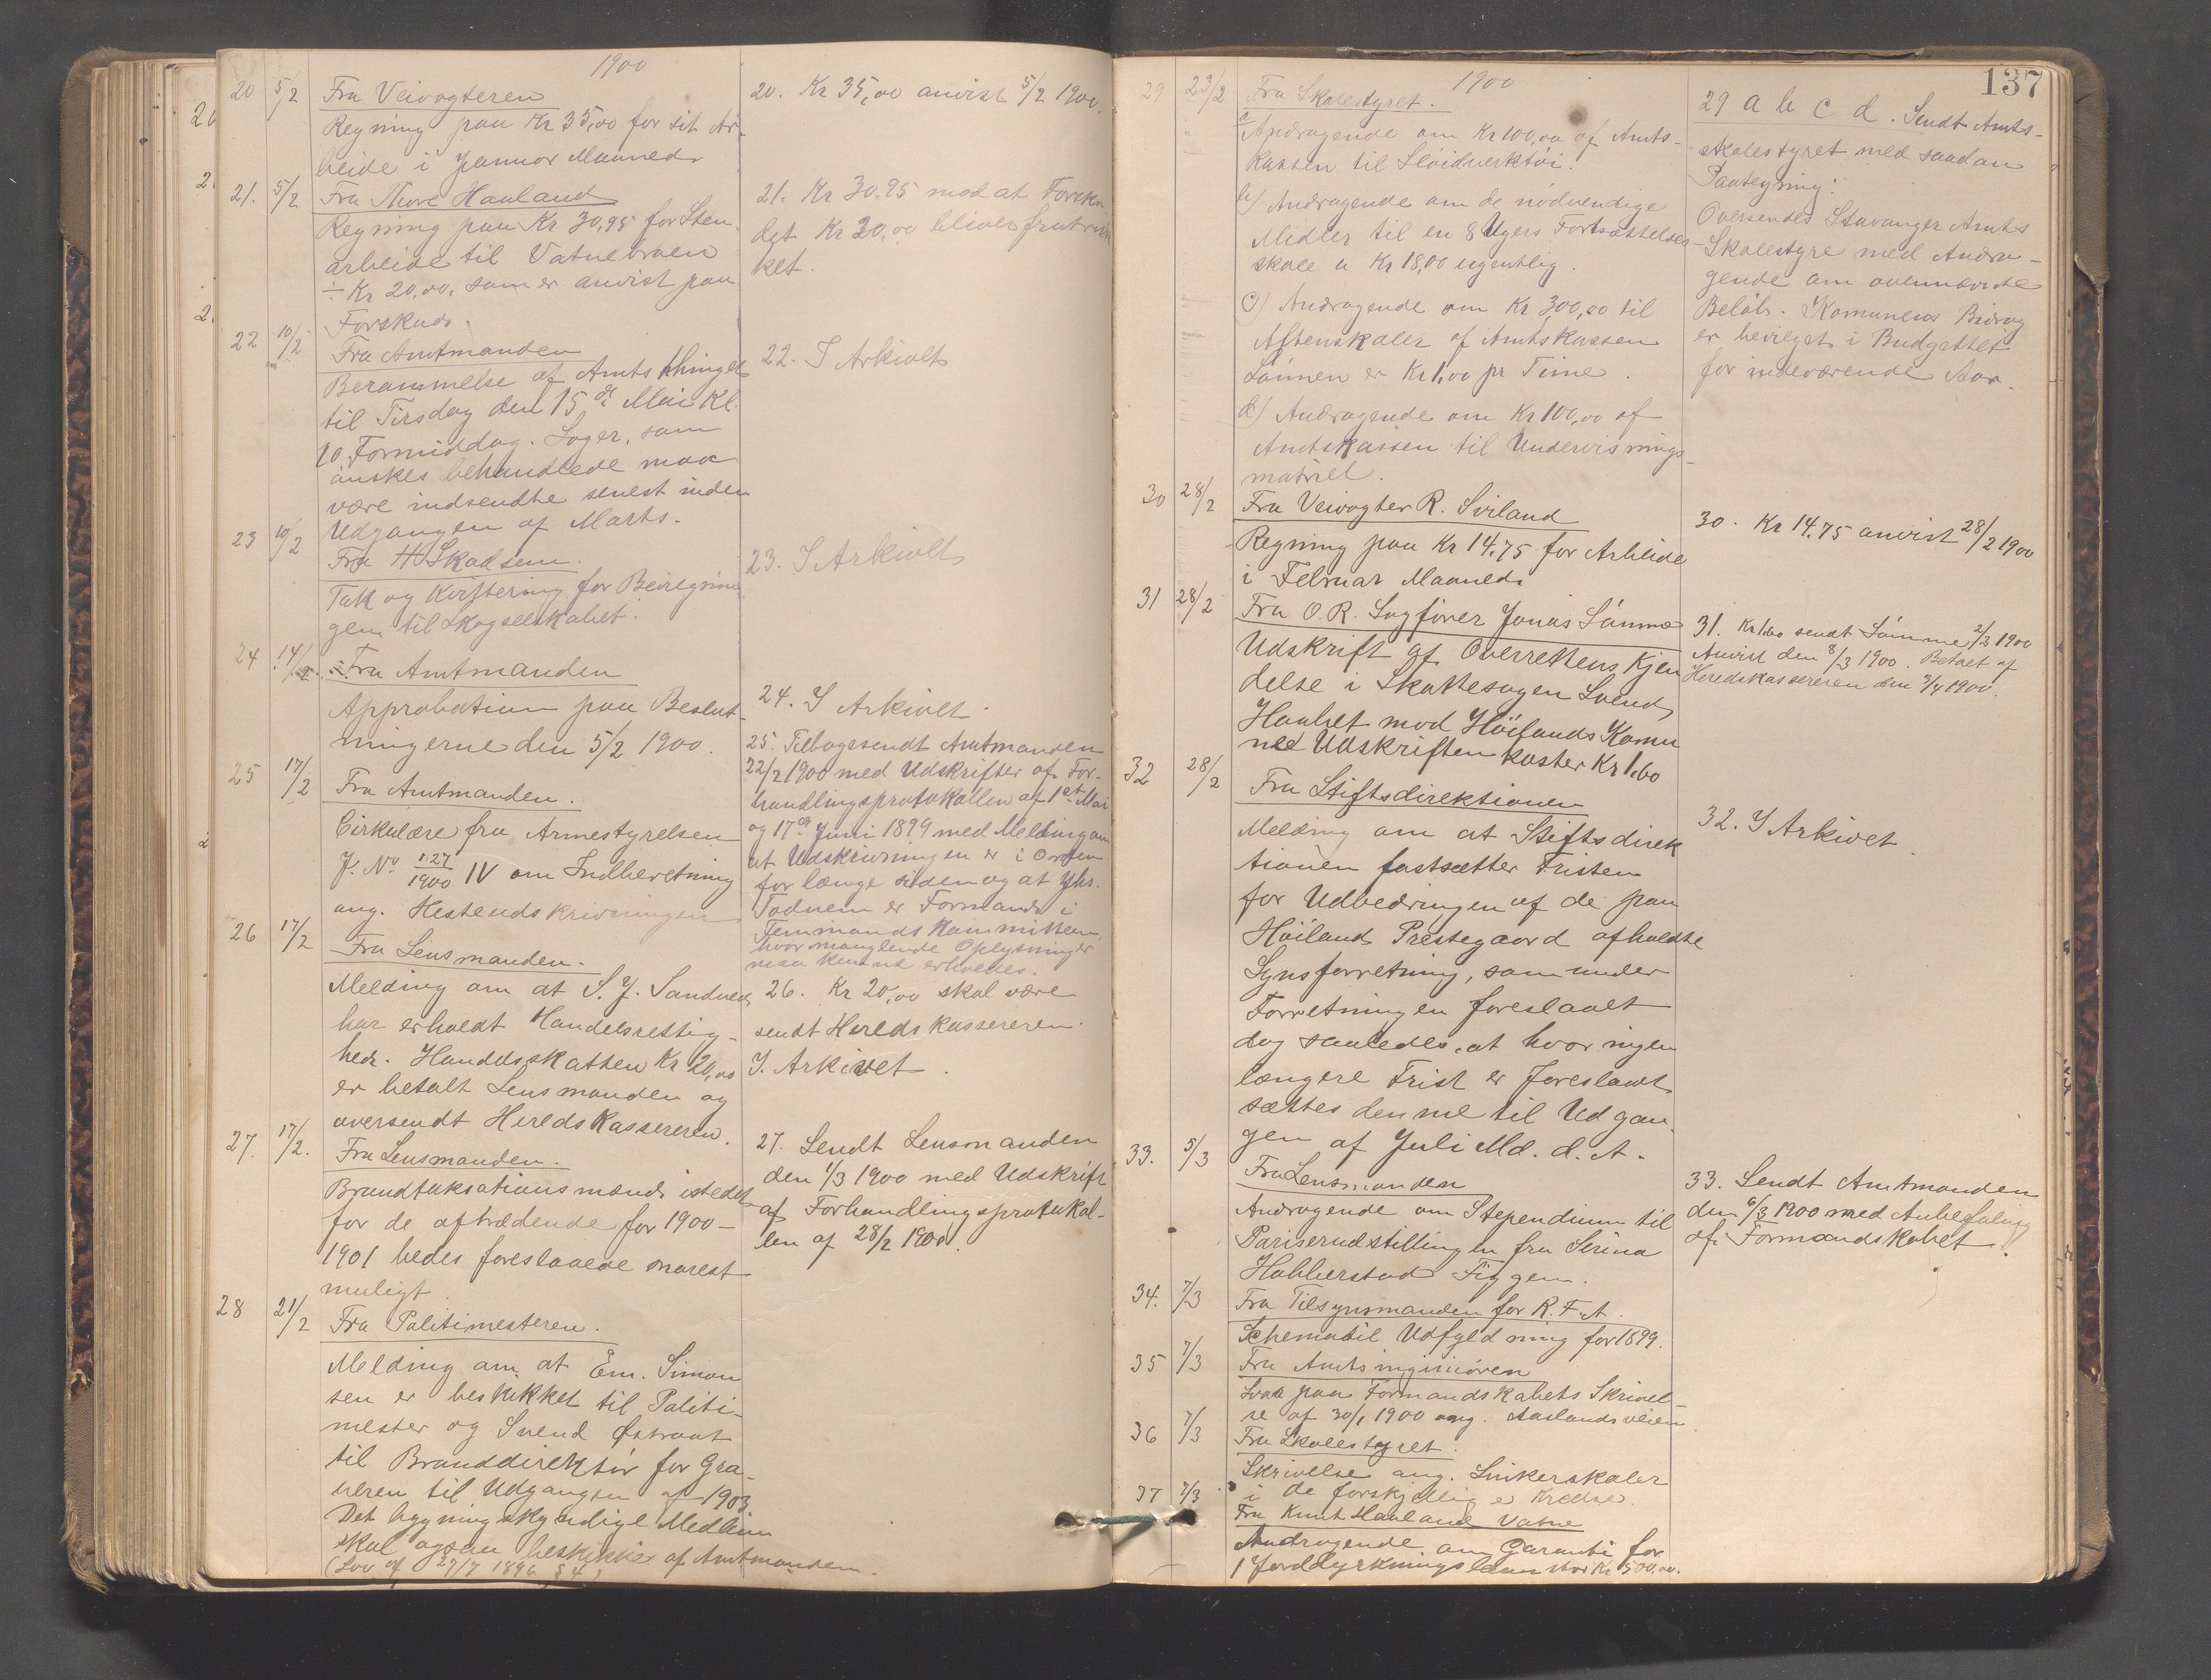 1900
20 5/2 Fra Veivogteren
Regning paa Kr 35,00 for sit Ar-
beide i Januar Maaned.
21. 5/2 Fra Thore Hauland
Regning paa Kr 30,95 for Sten-
arbeide til Vatnebroen
÷ Kr 20,00, som er anvist paa
Forskud.
22 10/2 Fra Amtmanden
Berammelse af Amtsthinget
til Tirsdag den 15de Mai Kl.
10 Formiddag. Sager, som
ønskes behandlede maa
være indsendte senest inden
Udgangen af Marts.
23 10/2 Fra H Skadsem.
Tak og Kvittering for Bevilgnin
gen til Skogselskabet.
24 14/2 Fra Amtmanden
Approbation paa Beslut-
ningerne den 5/2 1900.
25 17/2 Fra Amtmanden.
Cirkulære fra Armestyrelsen
J. No 127/1900 IV om Indberetning
ang. Hesteudskrivningen
26 17/2 Fra Lensmanden.
Melding om at S. J. Sandved
har erholdt Handelsrettig-
hed. Handelsskatten Kr 20,00
er betalt Lensmanden og
oversendt Heredskassereren.
27. 17/2. Fra Lensmanden.
Brandtaksationsmænd istedet
for de aftrædende for 1900-
1901 bedes foreslaaede snarest
muligt
28 21/2 Fra Politimesteren.
Melding om at Em. Simon
sen er beskikket til Politi-
mester og Svend Østraat
til Branddirektør for Gra-
veren til Udgangen af 1903
Det bygningskyndige Medlem
skal ogsaa beskikkes af Amtmanden.
(Lov af 27/7 1896 § 4)
20. Kr 35,00 anvist 5/2 1900.
21. Kr 30,95 mod at Forsku
det Kr 20,00 bliver fratruk
ket.
22. I Arkivet
23. I Arkivet
24. I Arkivet.
25. Tilbagesendt Amtmanden
22/2 1900 med Udskrifter af For-
handlingsprotokollen af 1st Mai
og 17de Juni 1899 med Melding om
at Udskrivningen er i Orden
for længe siden og at Yhs.
Todnem er Formand i
Femmandskommitteen,
hvor manglende Oplysninger
maa kunne erholdes.
26. Kr 20,00 skal være
sendt Heredskassereren.
I. Arkivet.
27. Sendt Lensmanden
den 1/3 1900 med Udskrift
af Forhandlingsprotokol-
len af 28/2 1900.
137
1900
29 23/2 Fra Skolestyret.
a Andragende om Kr 100,00 af Amts-
kassen til Sløidverktøi.
b) Andragende om de nødvendige
Midler til en 8 Ugers Fortsættelses-
skole a Kr 18,00 ugentlig.
c) Andragende om Kr 300,00 til
Aftenskoler af Amtskassen
Lønnen er Kr 1,00 pr Time.
d) Andragende om Kr 100,00 af
Amtskassen til Undervisnings-
matriel.
30 28/2 Fra Veivogter R. Sviland
Regning paa Kr 14,75 for Arbeide
i Februar Maaned.
31 28/2 Fra O. R. Sagfører Jonas Sømme
Udskrift af Overrettens Kjen
delse i Skattesagen Svend
Haabet mod Høilands Komu
ne Udskriften koster Kr 1,60
32 28/2 Fra Stiftsdirektionen
Melding om at Stiftsdirek
tionen fastsætter Fristen
for Udbedringen af de paa
Høiland Prestegaard afholdte
Synsforretning, som under
Forretningen foreslaaet
dog saaledes, at hvor ingen
længere Frist er foreslaaet
sættes denne til Udgan-
gen af Juli Md. d. A.
33. 5/3 Fra Lensmanden
Andragende om Stependium til
Pariserudstillingen fra Serina
Hobberstad Figgen.
34. 7/3 Fra Tilsynsmanden for R. F. A.
Schema til Udfyldning for 1899.
35 7/3 Fra Amtsingeniøren
Svar paa Formandskabets Skrivel-
se af 30/1 1900 ang. Aaslandsveien
36 7/3 Fra Skolestyret.
Skrivelse ang. Sinkerskoler
i de forskjellige Kredse.
37 7/3 Fra Knut Hauland Vatne
Andragende om Garanti for
1 Jorddyrkningslaan stor Kr 500,00.
29 a b c d. Sendt Amts-
skolestyret med saadan
Paategning:
Oversendes Stavanger Amts
Skolestyre med Andra-
gende om ovennævnte
Beløb. Komunens Bidrag
er bevilget i Budgettet
for indeværende Aar.
30. Kr 14,75 anvist 28/2 1900
31. Kr 1,60 sendt Sømme 2/3 1900
Anvist den 8/3 1900. Betalt af
Heredskassereren den 3/4 1900.
32. I Arkivet
33. Sendt Amtmanden
den 6/3 1900 med Anbefaling
af Formandskabet.